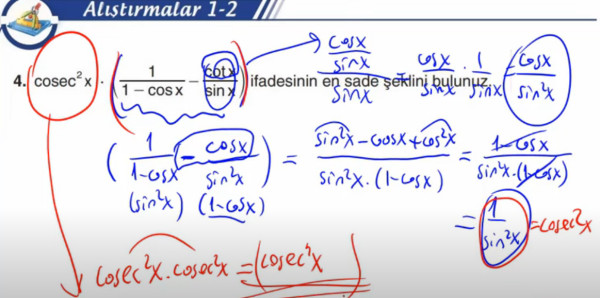 Alıştırmalar 1-2
4. cosec²x · ( 1/(1 - cosx) - cotx/sinx ) ifadesinin en sade şeklini bulunuz.
(cosx/sinx)/sinx = cosx/sinx · 1/sinx = cosx/sin²x
( 1/(1-cosx) - cosx/sin²x ) = (sin²x - cosx + cos²x)/(sin²x · (1-cosx)) = (1-cosx)/(sin²x · (1-cosx))
(sin²x) (1-cosx)
= 1/sin²x = cosec²x
cosec²x . cosec²x = (cosec⁴x)